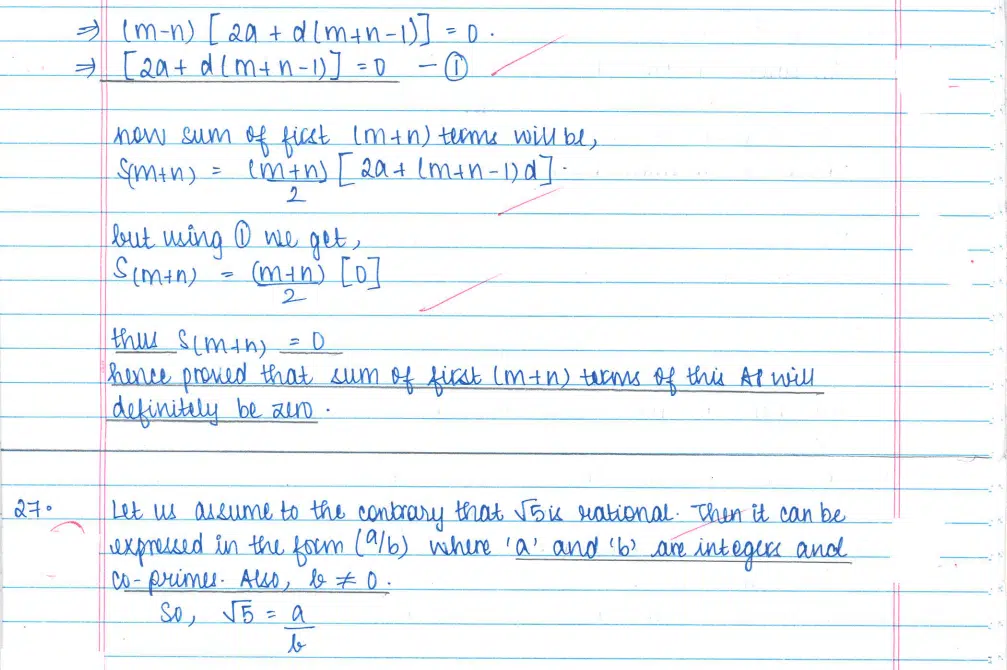 ⇒ (m-n) [2a + d(m+n-1)] = 0.
⇒ [2a + d(m+n-1)] = 0 - ①
now sum of first (m+n) terms will be,
S(m+n) = (m+n)/2 [2a + (m+n-1)d].
but using ① we get,
S(m+n) = (m+n)/2 [0]
thus S(m+n) = 0
hence proved that sum of first (m+n) terms of this AP will
definitely be zero.
27. Let us assume to the contrary that √5 is rational. Then it can be
expressed in the form (a/b) where 'a' and 'b' are integers and
co-primes. Also, b ≠ 0.
So, √5 = a/b